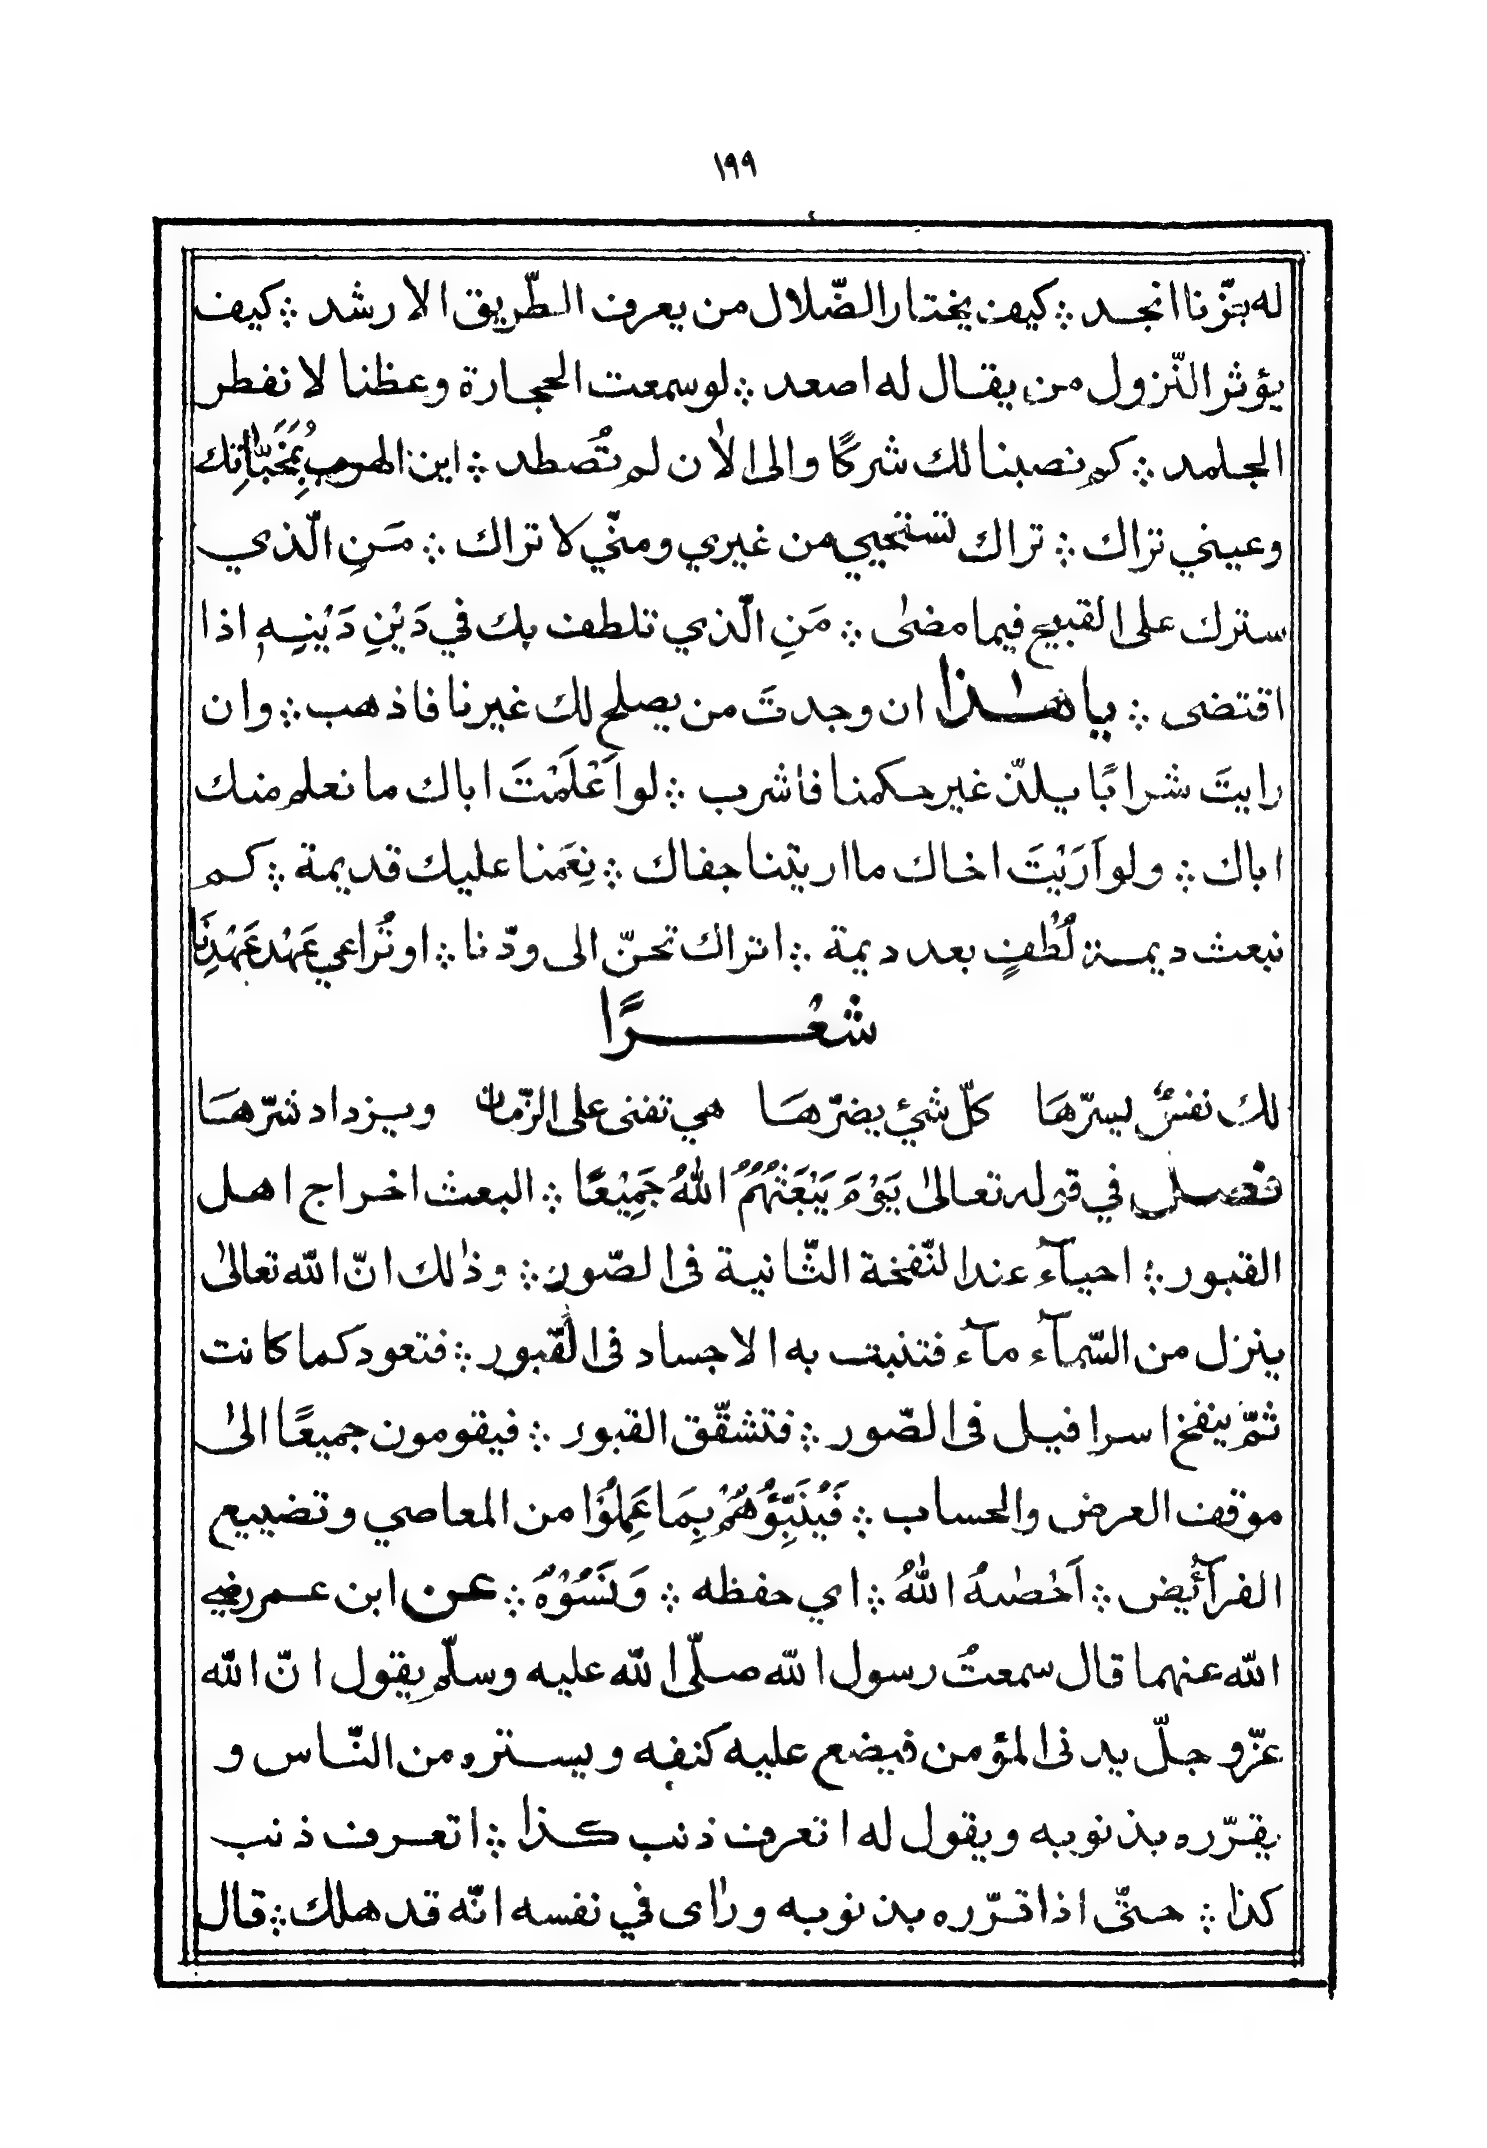 ١٩٩
له بعزّنا انجد ؞ كيف يختار الضّلال من يعرف الطّريق الارشد ؞ كيف
يؤثر النّزول من يقال له اصعد ؞ لو سمعت الحجارة وعظنا لانفطر
الجلمد ؞ كم نصبنا لك شركًا والى الاٰن لم تُصطد ؞ اين الهرب بِمُخَبَّاٰتِك
وعيني تراك ؞ تراك تستحيي من غيري ومنّي لا تراك ؞ مَنِ الّذي
سترك على القبيح فيما مضىٰ ؞ مَنِ الّذي تلطف بك في دَيْنِ دَيْنِه اذا
اقتضى ؞ ياهٰذا ان وجدتَ من يصلح لك غيرنا فاذهب ؞ وان
رايتَ شرابًا يلذّ غير حكمنا فاشرب ؞ لو اَعْلَمْتَ اباك ما نعلم منك
اباك ؞ ولو اَرَيْتَ اخاك ما اريتنا جفاك ؞ نِعَمنا عليك قديمة ؞ كم
نبعث ديمة لُطْفٍ بعد ديمة ؞ اتراك تحنّ الى ودّنا ؞ او تُرَاعي عَهْد عَهْدِنَا
شعْرًا
لك نفسٌ يسرّها كلّ شئ يضرّها هي تفنى على الزّمان ويزداد شرّها
فصل في قوله تعالىٰ يَوْمَ يَبْعَثُهُمُ اللهُ جَمِيْعًا ؞ البعث اخراج اهل
القبور ؞ احيآء عند النّفخة الثّانية فى الصّور ؞ وذٰلك انّ الله تعالىٰ
ينزل من السّمآء مآء فتنبت به الاجساد فى القّبور ؞ فتعود كما كانت
ثمّ ينفخ اسرافيل فى الصّور ؞ فتشقّق القبور ؞ فيقومون جميعًا الىٰ
موقف العرض والحساب ؞ فَيُنَبِّؤُهُمْ بِمَا عَمِلُوْا من المعاصي وتضييع
الفرآئض ؞ اَحْصٰىهُ اللهُ ؞ اي حفظه ؞ وَنَسُوْهُ ؞ عن ابن عمر رضي
الله عنهما قال سمعتُ رسول الله صلّى الله عليه وسلّم يقول انّ الله
عزّ و جلّ يدنى المؤمن فيضع عليه كنفه ويستره من النّاس و
يقرّره بذنوبه ويقول له اتعرف ذنب كذا ؞ اتعرف ذنب
كذا ؞ حتّى اذا قرّره بذنوبه وراٰى في نفسه انّه قد هلك ؞ قال